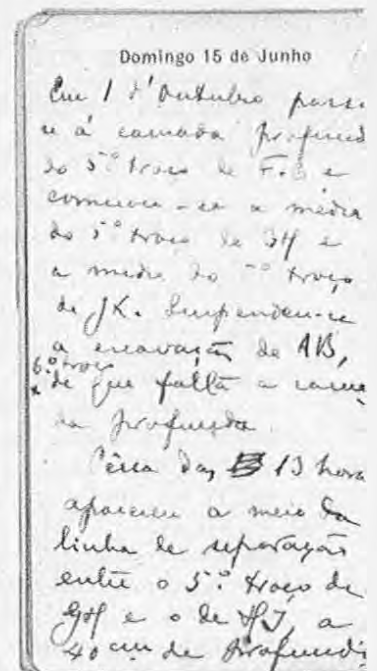 Domingo 15 de Junho
Em 1 d'Outubro pass-
u á camada profund
do 5º troço de F.G e
começou-se a média
do 5º troço de GH e
a media do troço
de JK. Suspendeu-se
a escavação de AB,
6.º troço
de que falta a cama
da profunda.
Cêrca das 13 hora
apareceu a meio da
linha de separação
entre o 5.º troço de
GH e o de HJ, a
40 cm de profundi